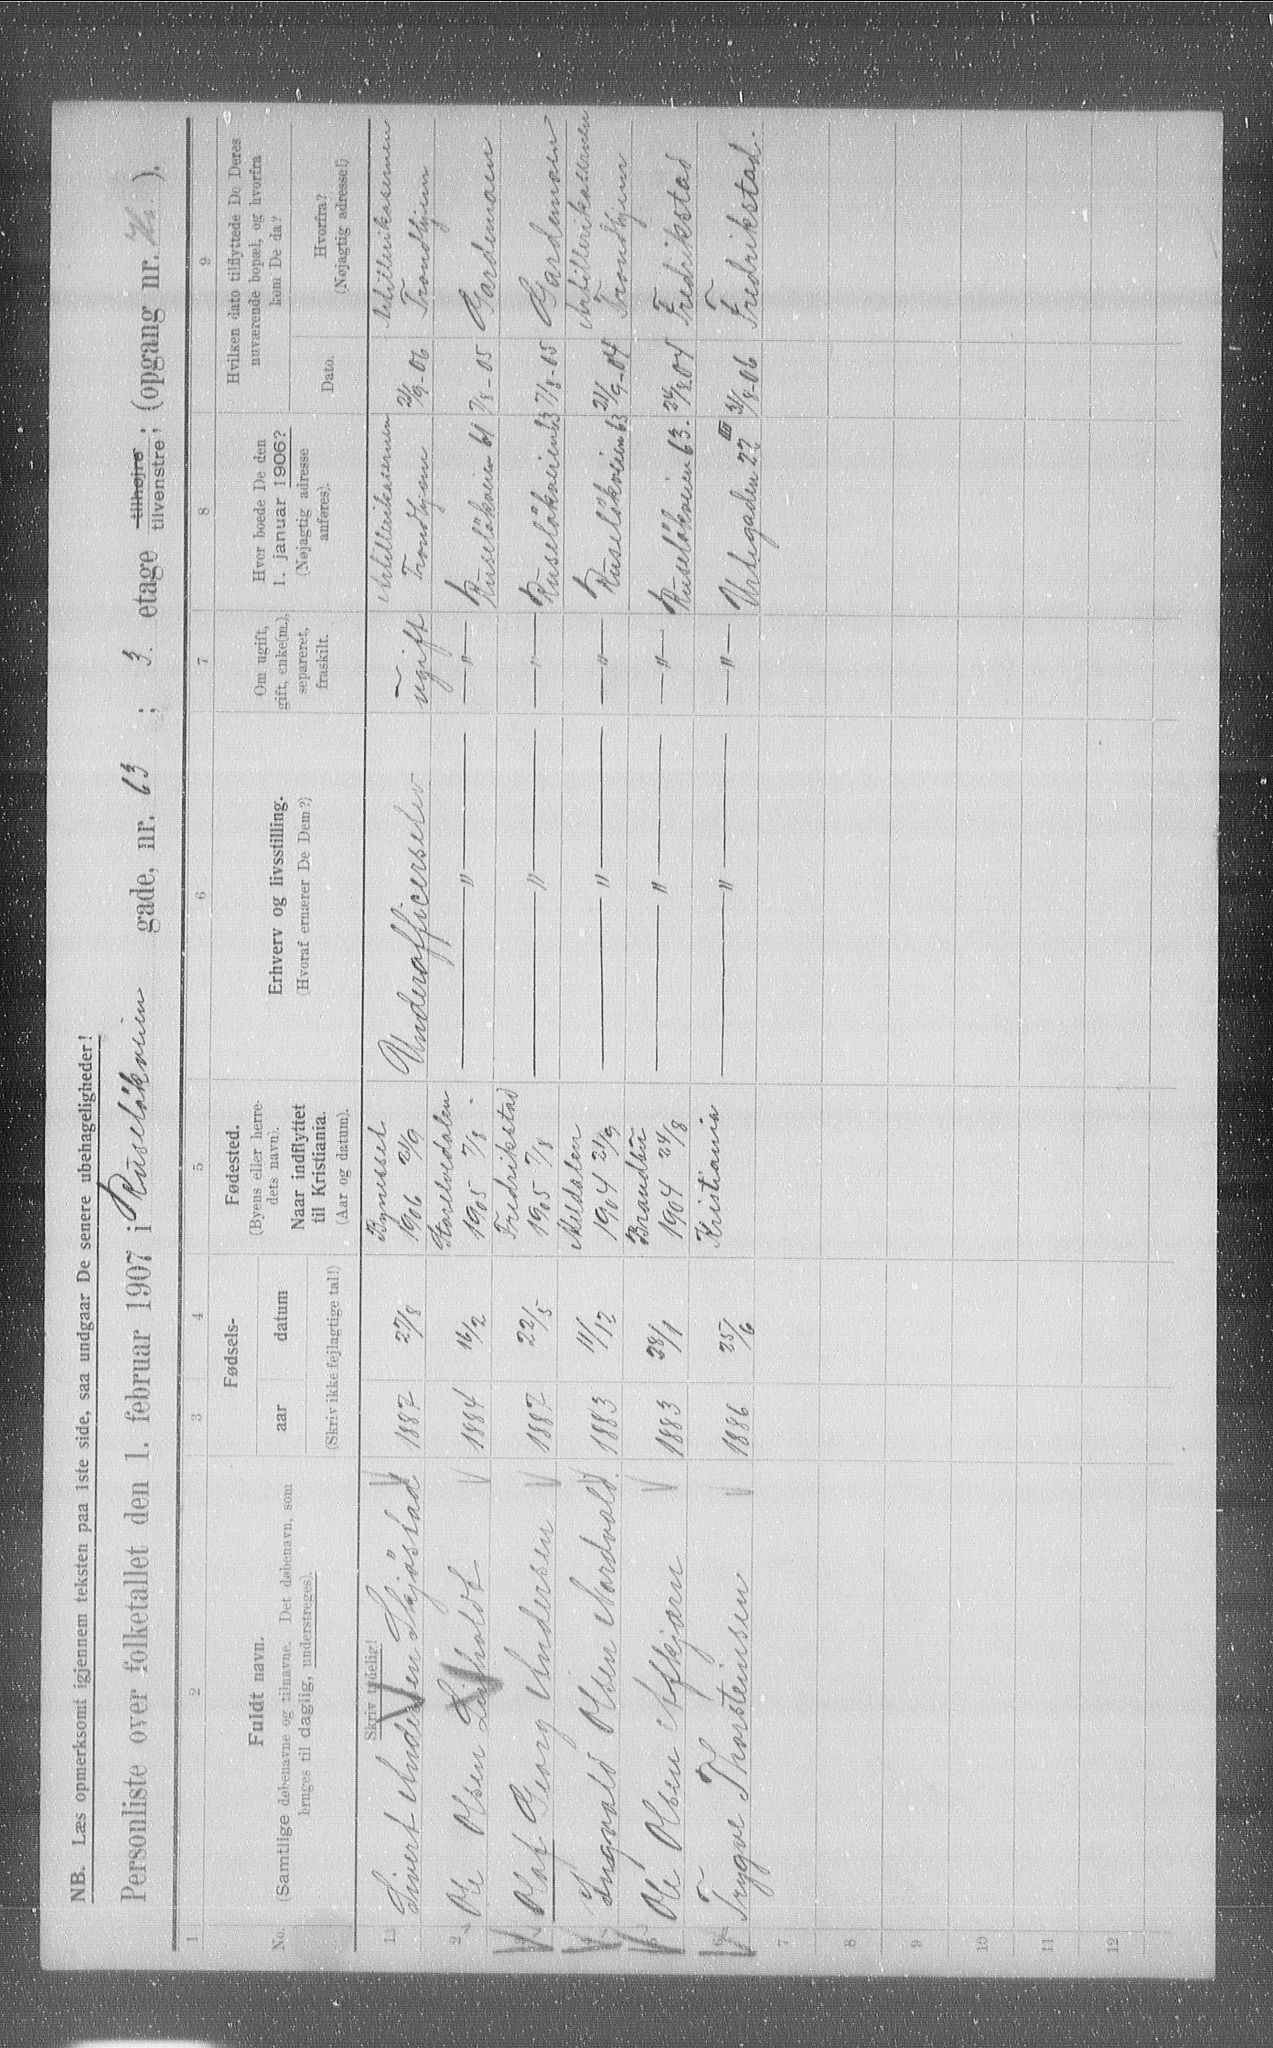 NB. Læs opmerksomt igjennem teksten paa 1ste side, saa undgaar De senere ubehageligheder!
Personliste over folketallet den 1. februar 1907 i Ruseløkveien gade, nr. 63 ; 3. etage tilhøjre tilvenstre; (opgang nr. ).
1 2 3 4 5 6 7 8 9
No.
Fuldt navn.
(Samtlige døbenavne og tilnavne. Det døbenavn, som
bruges til daglig, understreges).
Fødsels-
aar datum
(Skriv ikke fejlagtige tal!)
Fødested.
(Byens eller herre-
dets navn).
Naar indflyttet
til Kristiania.
(Aar og datum).
Erhverv og livsstilling.
(Hvoraf ernærer De Dem?)
Om ugift,
gift, enke(m.),
separeret,
fraskilt.
Hvor boede De den
1. januar 1906?
(Nøjagtig adresse
anføres).
Hvilken dato tilflyttede De Deres
nuværende bopæl, og hvorfra
kom De da?
Dato.
Hvorfra?
(Nøjagtig adresse!)
Skriv tydelig!
1. Sivert Andersen 1887 27/8 Bynesset 1906 21/9 Underofficerselev ugift Artillerikasernen Trondhjem 21/9-06 Artillerikasernen Trondhjem
2 Ole Olsen 1884 16/2 Storelvdalen 1905 7/8 - — " — — " — Ruseløkveien 61 7/8-05 Gardemoen
3 Olaf Georg Andersen 1887 22/5 Fredrikstad 1905 7/8 — " — — " — Ruseløkveien 63 7/8-05 Gardemoen
4 Ingvald Olsen Nordvold. 1883 11/12 Meldalen 1904 21/9 — " — — " — Ruseløkveien 63 21/9-04 Artillerikasernen Trondhjem
5 Ole Olsen 1883 28/1 Brandbu 1904 24/8 — " — — " — Ruseløkveien 63. 24/8.04 Fredrikstad
6 Trygve Thorsteinsen 1886 25/6 Kristiania — " — — " — Urtegaden 22 III 31/8-06 Fredrikstad.
7
8
9
10
11
12